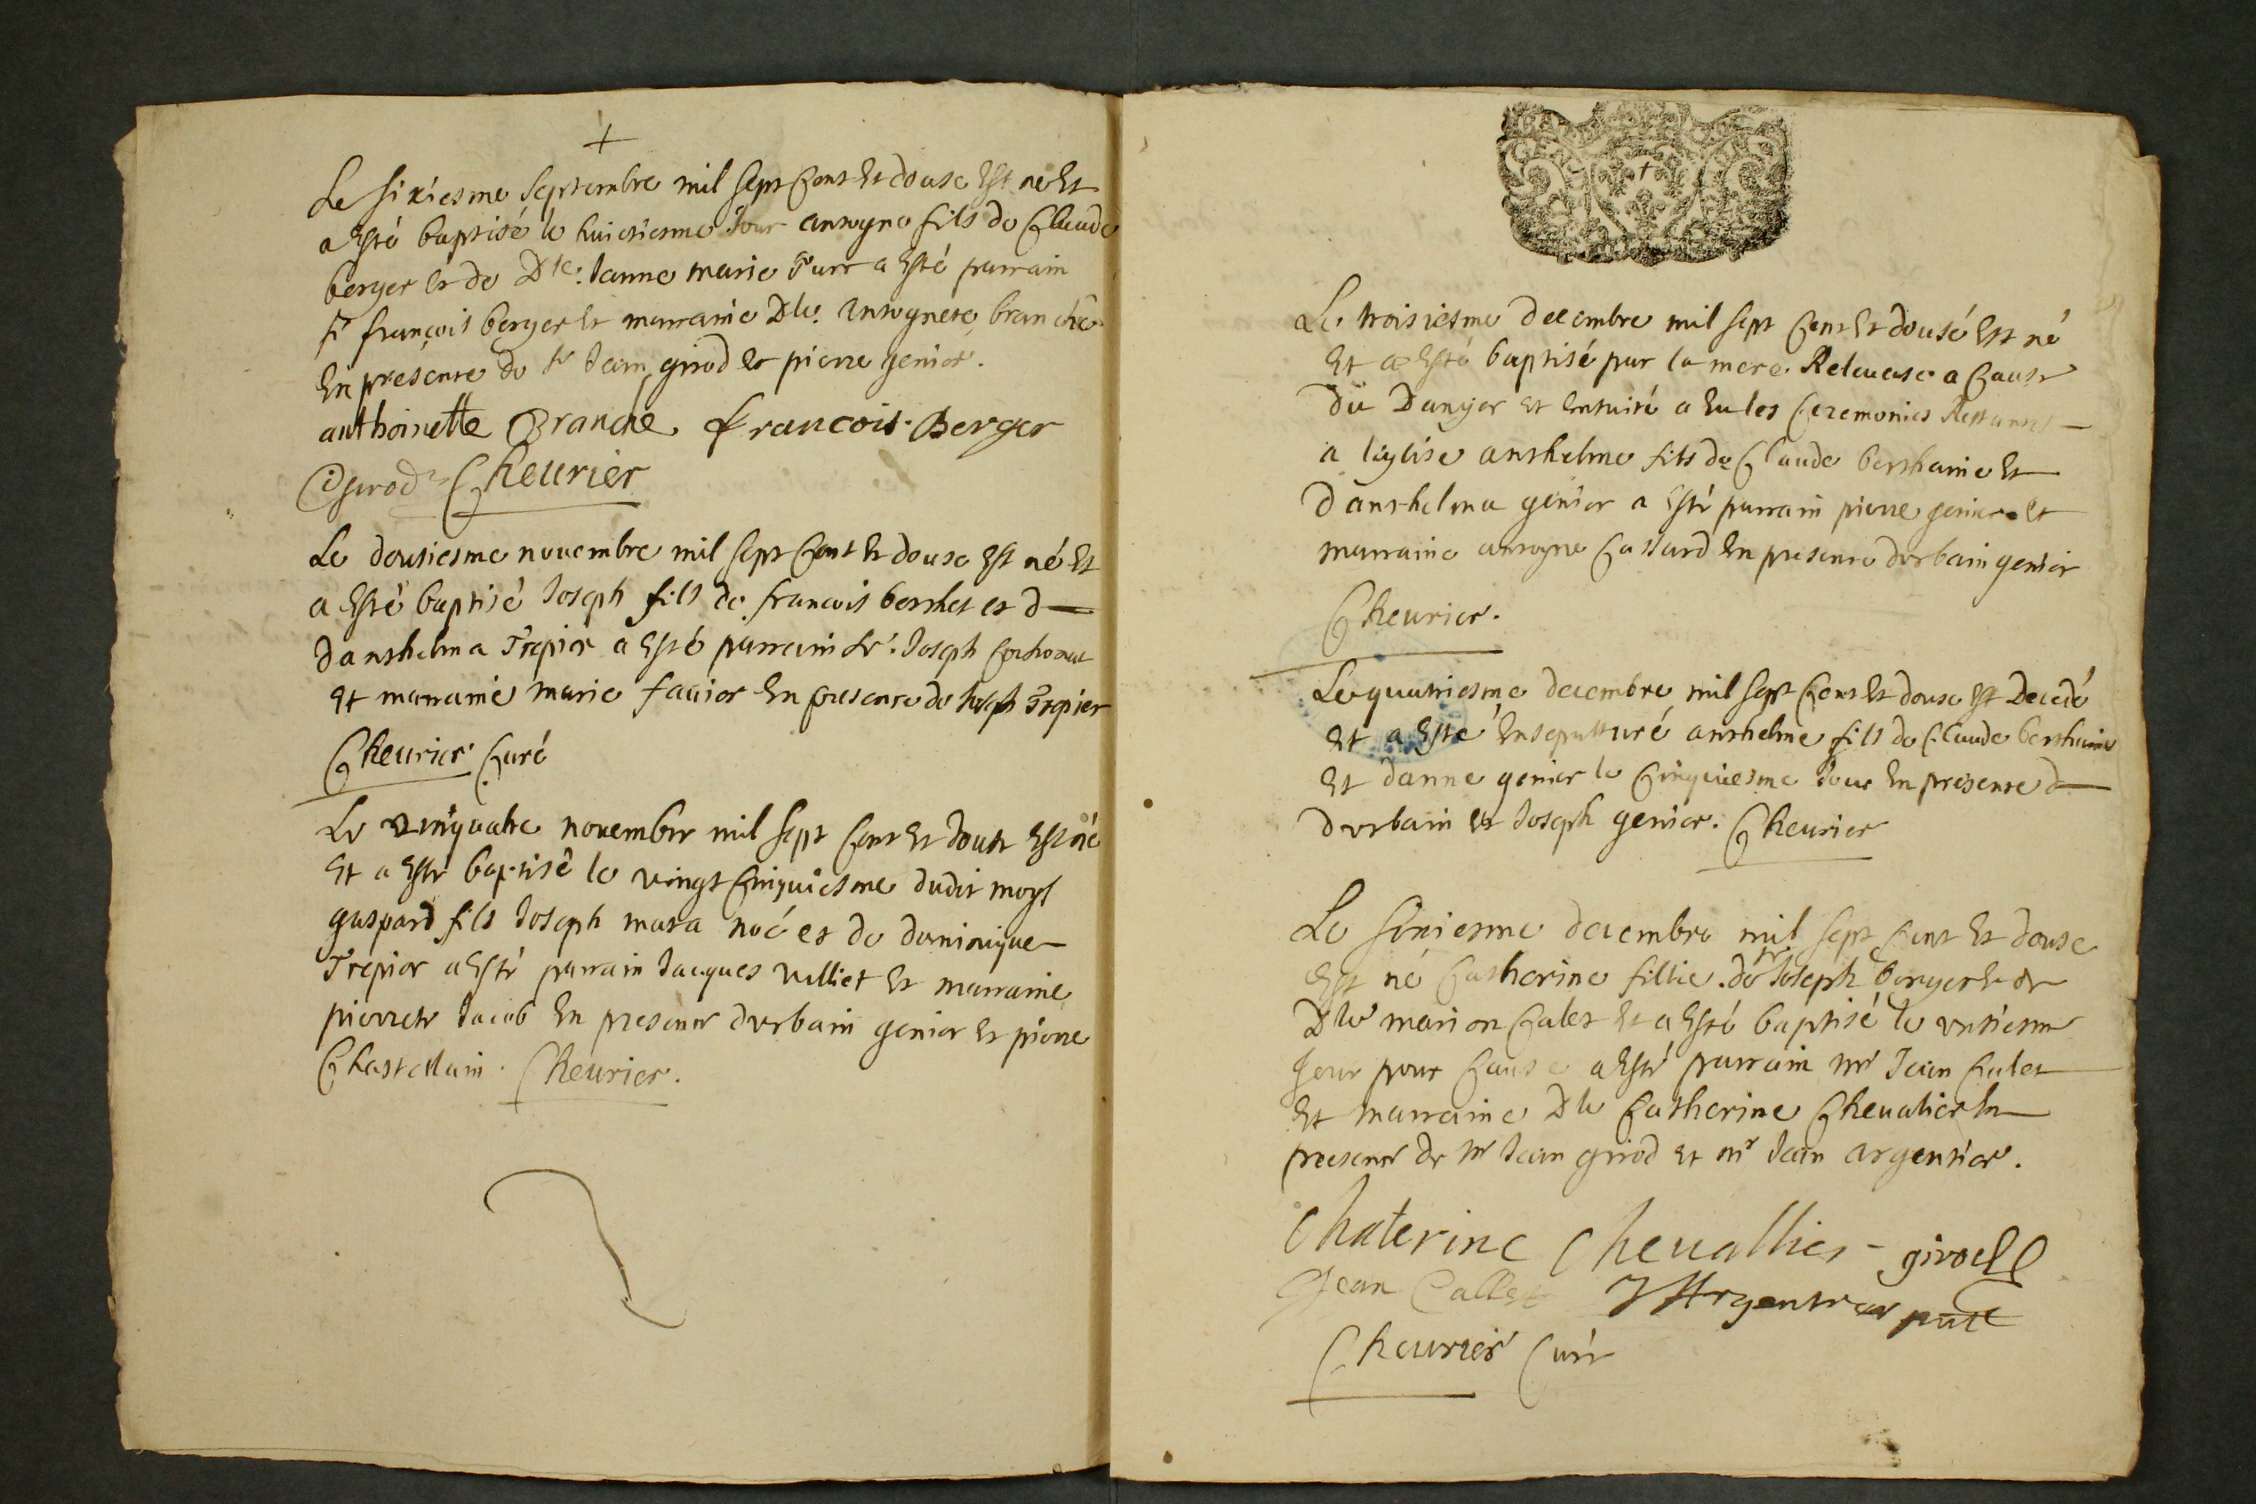 Le sixiesme septembre mil sept Cent Et douse Est né Et
a Esté baptisé le huictiesme Jour antoyne fils de Claude
berger et de Dle: Janne marie a Esté parrain
sr françois berger Et marraine Dle. Antoynete branche
En présence de sr Jean girod et pierre genier.
anthoinette Branche francois Berger
girod Cheurier
Le dousiesme nouembre mil sept Cent Et douse Est né Et
a Esté baptisé Joseph fils de francois berthet et d
danthelma Trepier a Esté parrain sr. Joseph
Et marraine marie fauier En presence de Joseph Trepier
Cheurier Curé
Le vinquatre nouembre mil sept Cent Et douse Est né
Et a Esté baptisé le vingt Cinquiesme dudit moys
gaspard fils Joseph et de dominique
Trepier a Esté parrain Jacques Vulliet Et marraine
pierrete Jacob En presence durbain genier Et pierre
Chastellain. Cheurier.
Le troisiesme decembre mil sept Cent Et dousé Est né
Et a Esté baptisé par la mere Releueuse a Cause
du Danger et Ensuité a Eu les Ceremonies Restantes
a léglise anthelme fils de Claude berthaine Et
danthelma genier a Esté parrain pierre genier Et
marraine antoyne Castard En presence durbain genier
Cheurier.
Le quatriesme decembre mil sept Cent Et douse Est Decedé
Et a Esté Ensepulturé anthelme fils de Claude berthaine
Et danne genier le Cinquiesme Jour En presence d
durbain et Joseph genier. Cheurier
Le sixiesme decembre mil sept Cent Et douse
Est né Catherine fillie de sr Joseph berger Et de
Dle marion Calet Et a Esté baptisé le
Jour pour Cause a Esté parrain mr Jean Calet
Et marraine Dle Catherine Cheualier En
presence de mr Jean girod et mr Jean argentier.
Chaterine Cheuallier girod
Jean Callet J Argentier pnt
Cheurier Curé